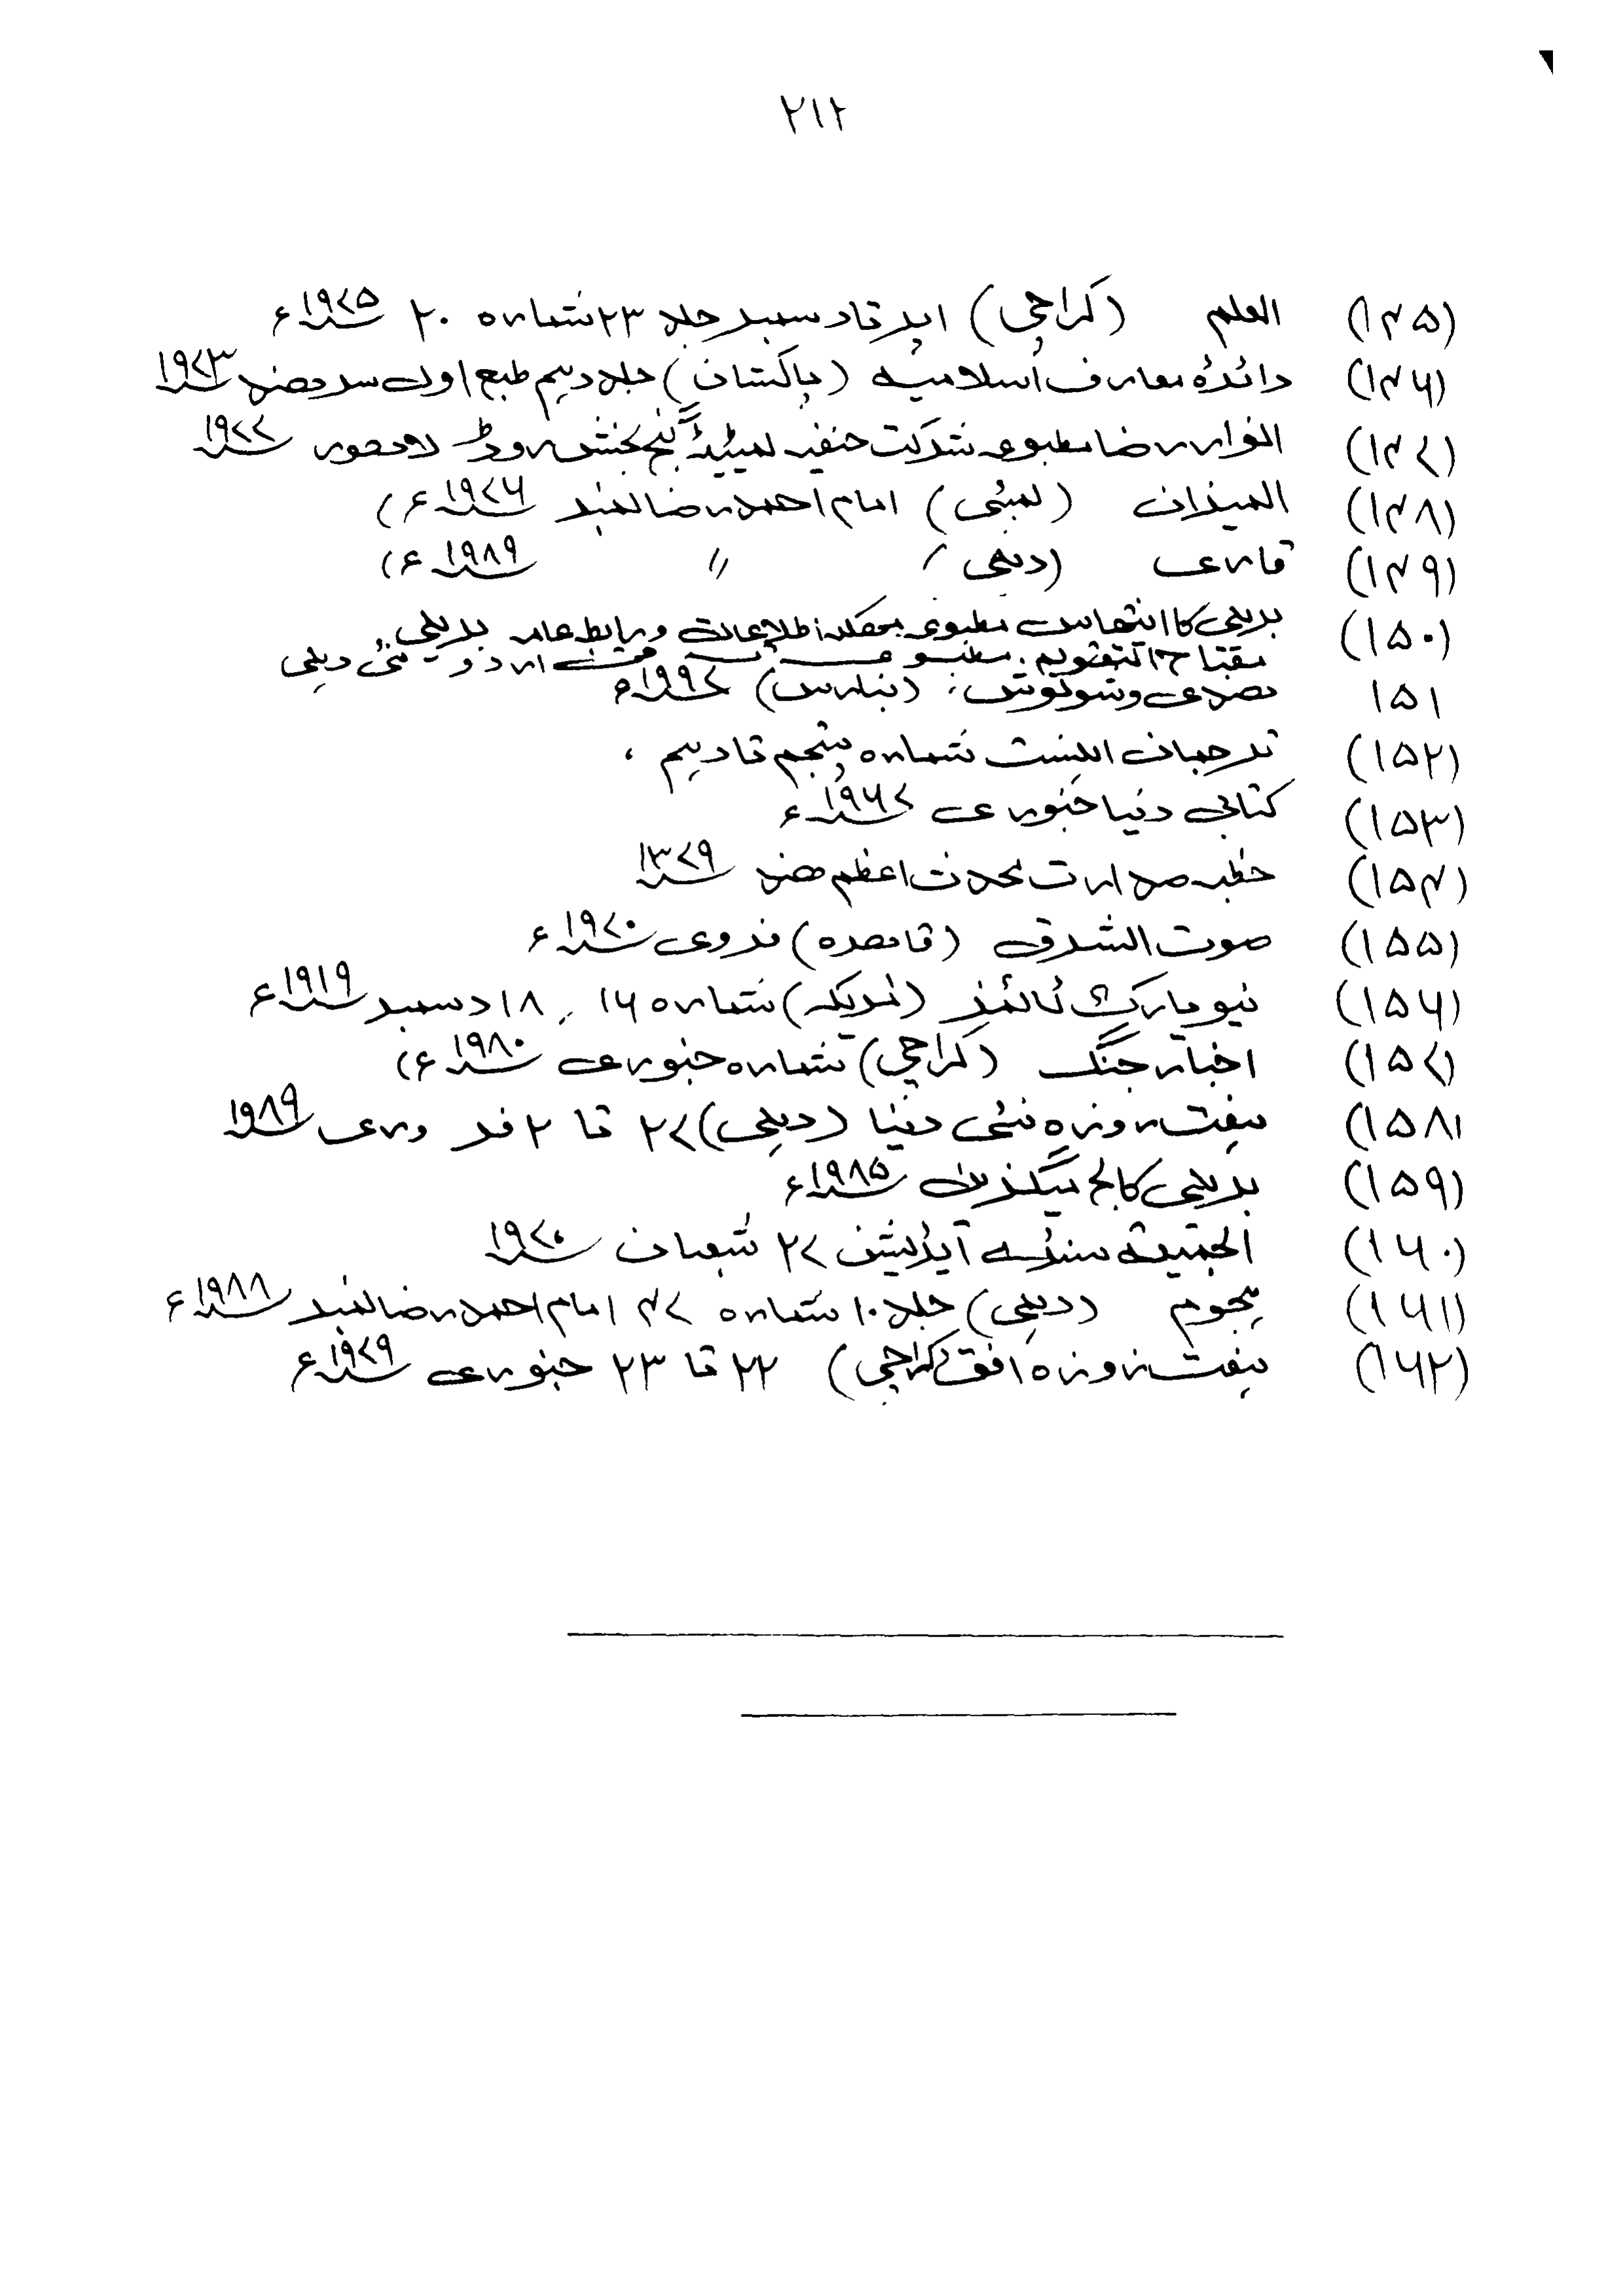 ۲۱۲
(۱۴۵) العلم (کراچی) اپریل تا دسمبر جلد ۲۳ شمارہ ۲۰ ۱۹۷۵ء
(۱۴۶) دائرۂ معارف اسلامیہ (پاکستان) جلد دہم طبع اول سرحضد ۱۹۷۳
(۱۴۷) انوار رضا مطبوعہ شرکت حنفیہ لمیٹیڈ گنج بخش روڈ لاھور ۱۹۷۷
(۱۴۸) المیزان (بمبئی) امام احمد رضا نمبر ۱۹۷۶ء)
(۱۴۹) قاری (دہلی) // ۱۹۸۹ء)
(۱۵۰) بریلی کا اتہاس مطبوعہ محکمہ اطلاعات و رابطہ عامہ بریلی
مفتاح التقویم مطبوعہ اردو نئی دہلی
۱۵۱ (بنارس) ۱۹۹۷ء
(۱۵۲) ترجمان اہلسنت شمارہ پنجم تا دہم،
(۱۵۳) کتابی دنیا جنوری ۱۹۶۷ء
(۱۵۴) خطبہ صدارت محدث اعظم ھند ۱۳۷۹
(۱۵۵) صوت الشرق (قاھرہ) فروری ۱۹۷۰ء
(۱۵۶) نیویارک ٹائمز (امریکہ) شمارہ ۱۶، ۱۸ دسمبر ۱۹۱۹ء
(۱۵۷) اخبار جنگ (کراچی) شمارہ جنوری ۱۹۸۰ء)
(۱۵۸) ہفت روزہ نئی دنیا (دہلی) ۲۷ تا ۲ فروری ۱۹۸۹
(۱۵۹) بریلی کالج میگزین ۱۹۸۵ء
(۱۶۰) الجمیعۃ سنڈے ایڈیشن ۲۷ شعبان ۱۹۷۰
(۱۶۱) ہجوم (دہلی) جلد ۱۰ شمارہ ۴۷ امام احمد رضا نمبر ۱۹۸۸ء
(۱۶۲) ہفت روزہ افق (کراچی) ۲۲ تا ۲۳ جنوری ۱۹۷۹ء